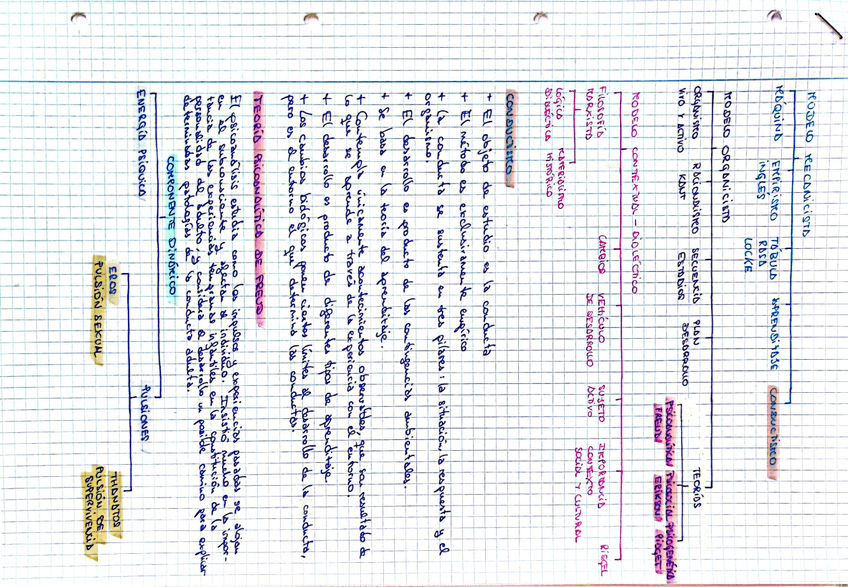 MODELO MECANICISTA
MÁQUINA EMPIRISMO TÁBULA APRENDIZAJE CONDUCTISMO
INGLES RASA
LOCKE
MODELO ORGANICISTA
ORGANISMO RACIONALISMO SECUENCIA PLAN TEORÍAS
VIVO Y ACTIVO KANT ESTADIOS DESARROLLO
PSICOANALÍTICA PSICOSOCIAL PSICOGENÉTICA
FREUD ERIKSON PIAGET
MODELO CONTEXTUAL - DIALÉCTICO
FILOSOFÍA CAMBIOS VEHÍCULO SUJETO IMPORTANCIA RIEGEL
MARXISTA DE DESARROLLO ACTIVO CONTEXTO
SOCIAL Y CULTURAL
LÓGICA MATERIALISMO
DIALÉCTICA HISTÓRICO
CONDUCTISMO
+ El objeto de estudio es la conducta
+ El método es exclusivamente empírico
+ La conducta se sustenta en tres pilares: la situación, la respuesta y el
organismo.
+ El desarrollo es producto de las contingencias ambientales.
+ Se basa en la teoría del aprendizaje.
+ Contempla únicamente acontecimientos observables, que son resultado de
lo que se aprende a través de la experiencia con el entorno.
+ El desarrollo es producto de diferentes tipos de aprendizaje
+ Los cambios biológicos ponen ciertos límites al desarrollo de la conducta,
pero es el entorno el que determina las conductas.
TEORÍA PSICOANALÍTICA DE FREUD
El psicoanálisis estudia como los impulsos y experiencias pasadas se alojan
en el subconsciente y afectan al individuo. Insistió mucho en la impor-
tancia de las experiencias tempranas infantiles en la constitución de la
personalidad del adulto, y considera el desarrollo un posible camino para explicar
determinadas patologías de la conducta adulta.
COMPONENTE DINÁMICO
ENERGÍA PSÍQUICA PULSIONES
EROS THANATOS
PULSIÓN SEXUAL PULSIÓN DE
SUPERVIVENCIA